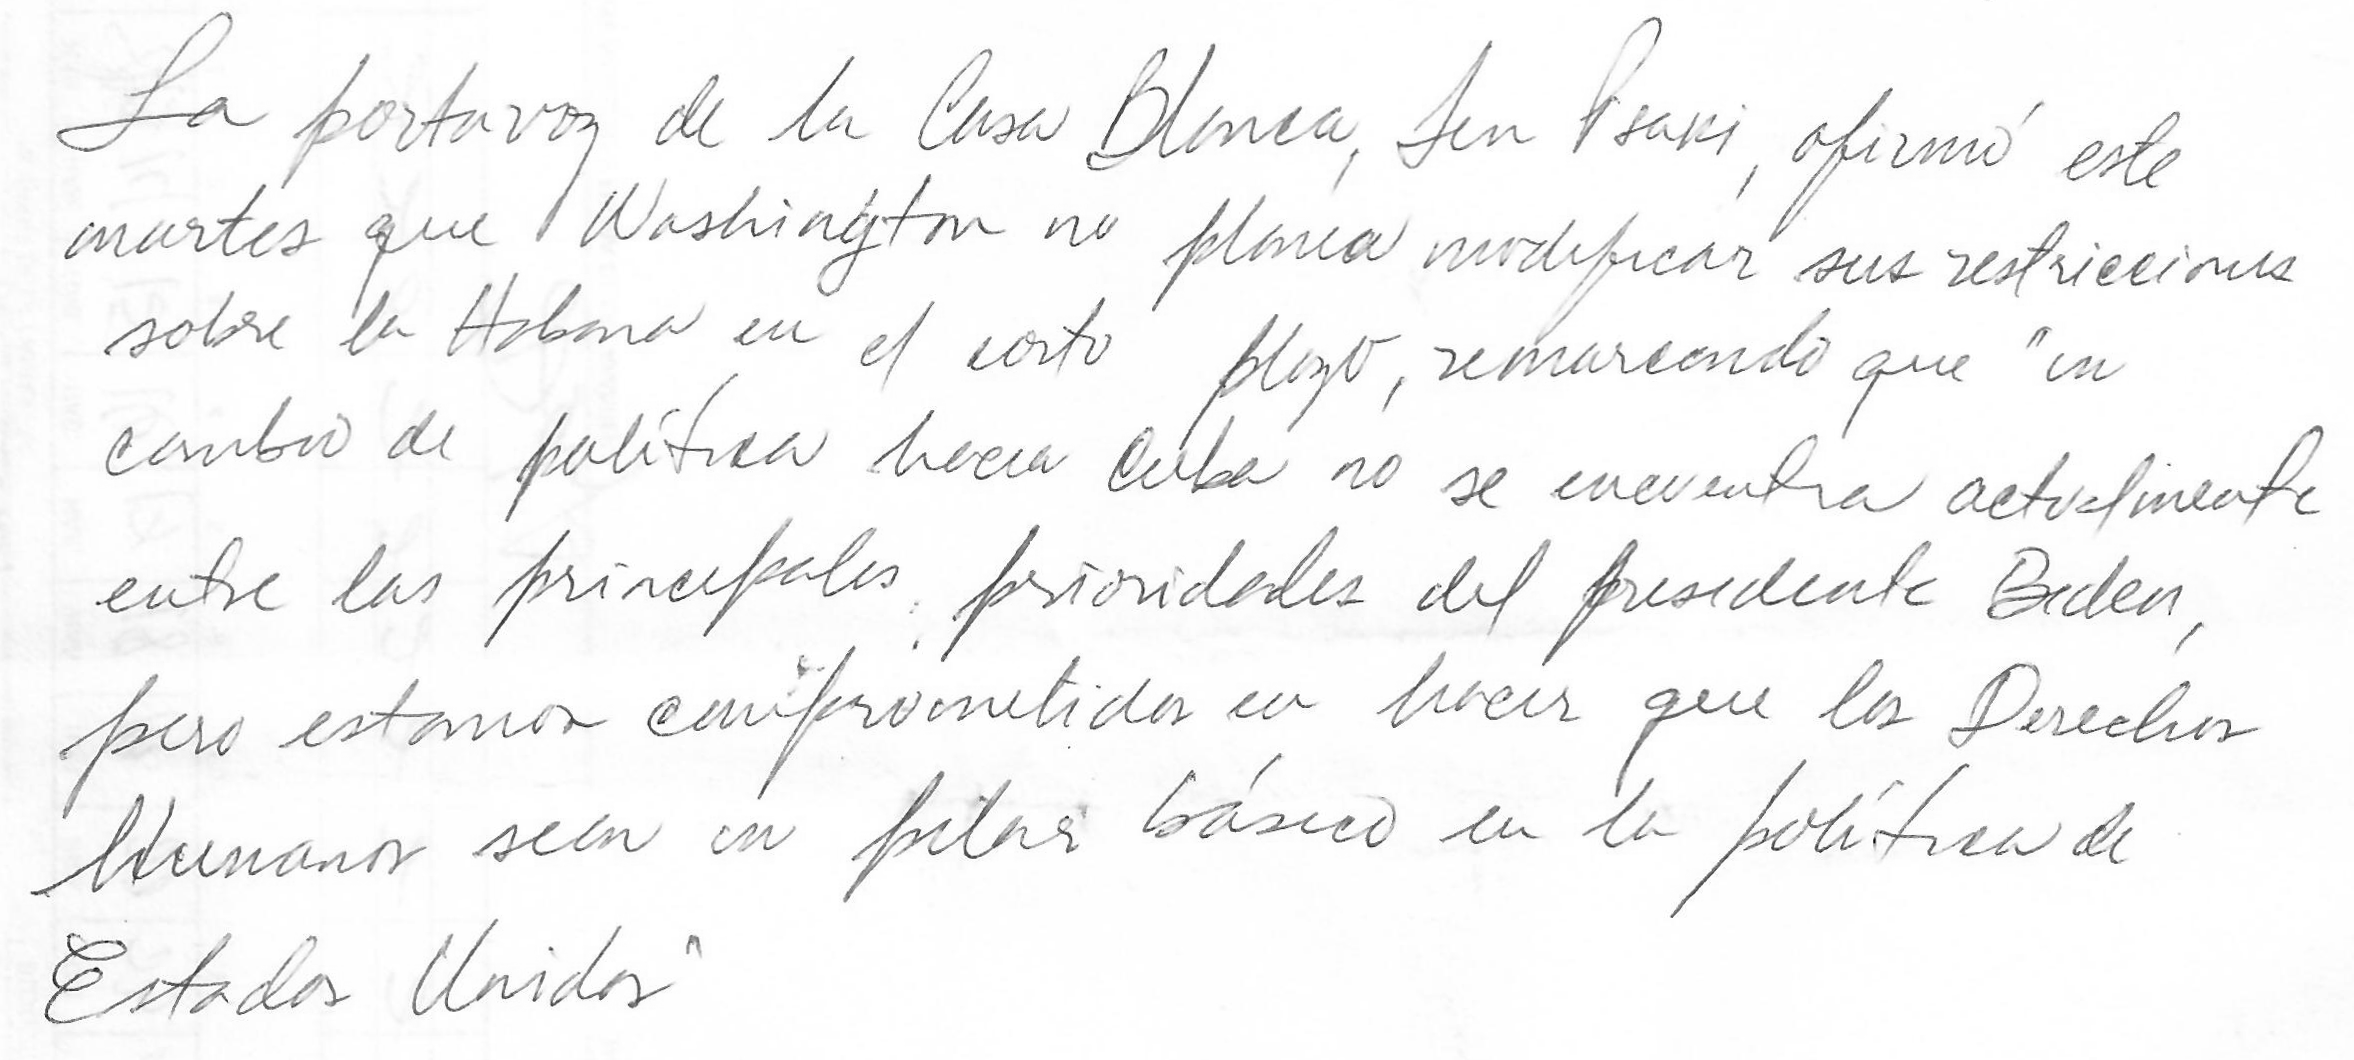 La portavoz de la Casa Blanca, Jen Psaki, afirmó este
martes que Washington no planea modificar sus restricciones
sobre la Habana en el corto plazo, remarcando que "un
cambio de política hacia Cuba no se encuentra actualmente
entre las principales prioridades del presidente Biden,
pero estamos comprometidos en hacer que los Derechos
Humanos sean un pilar básico en la política de
Estados Unidos"